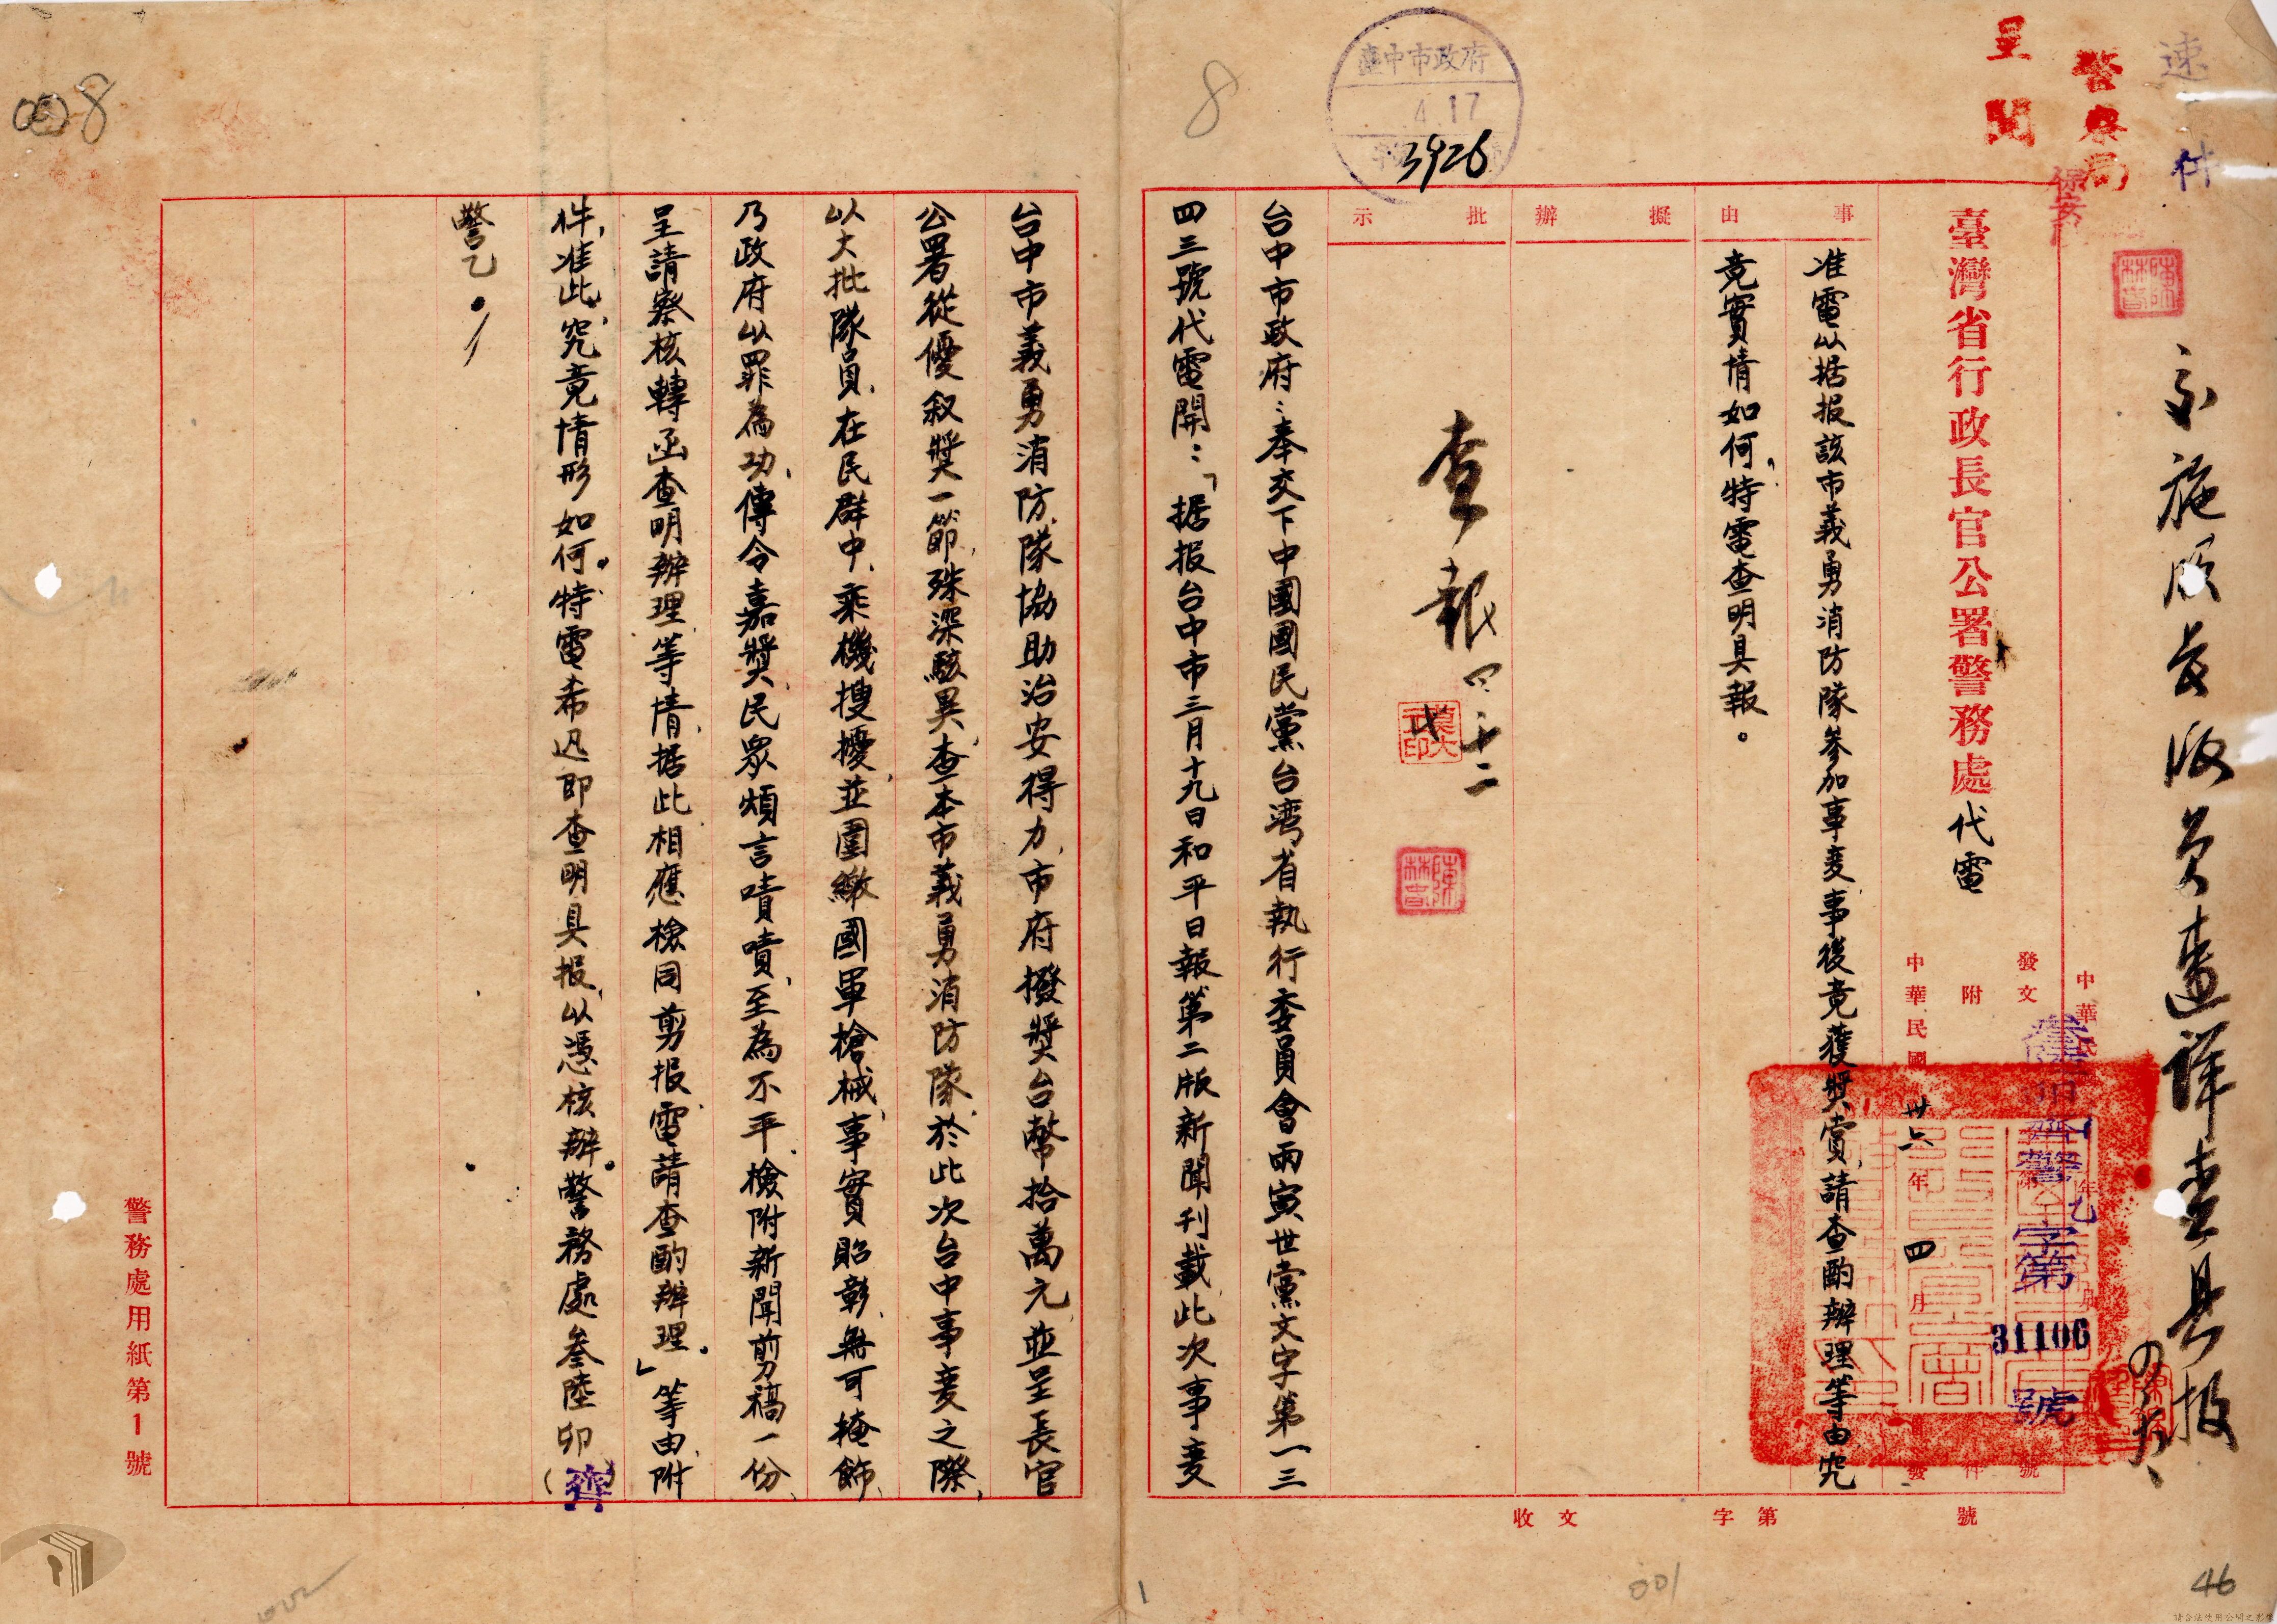 速件
警察局
呈閱
保安
臺中市政府
4.17
3926
8
8
臺灣省行政長官公署警務處代電
發文
附
件
中華民國卅六年四月
警乙字第31106號
事由
准電以据报該市義勇消防隊參加事变事後竟獲奬賞請查酌辦理等由究
竟實情如何、特電查明具報。
擬辦
批示
查報 四、十二
台中市政府：奉交下中國國民黨台湾省執行委員會兩寅世黨文字第一三
四三號代電開：「据报台中市三月十九日和平日報第二版新聞刊載、此次事变
台中市義勇消防隊協助治安得力、市府撥奬台幣拾萬元並呈長官
公署從優叙奬一節、殊深駭異、查本市義勇消防隊、於此次台中事变之際、
以大批隊員、在民群中、乘機搜擾、並圍繳國軍槍械、事實昭彰、無可掩飾、
乃政府以罪為功、傳令嘉奬、民眾煩言嘖嘖、至為不平、檢附新聞剪稿一份、
呈請察核轉函查明辦理等情、据此相應檢同剪报、電請查酌辦理。」等由、附
件、准此、究竟情形如何。特電希迅即查明具报、以憑核辦。警務處叁陸卯(齊)
警乙．1
收文
字第
號
警務處用紙第1號
001
46
1
請合法使用公開之影像